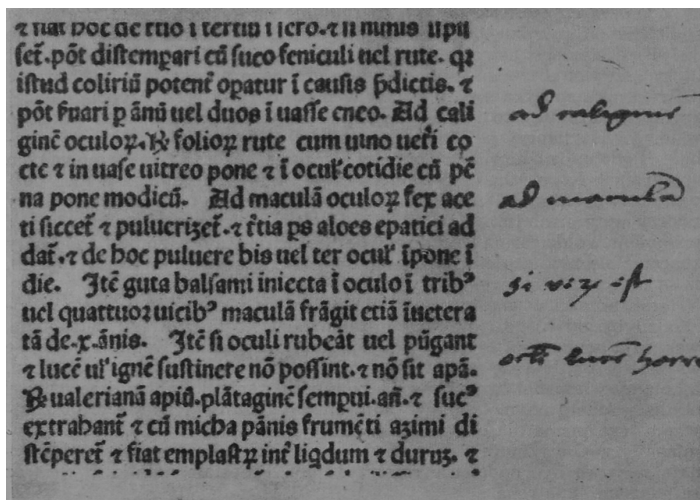 ⁊ fiat hoc de rtio ĩ tertiũ
set̃. põt distemꝑari cũ suco feniculi uel rute. qꝛ
istud coliriũ potent̃ oꝑatur ĩ causis p̄dictis. ⁊
põt ẜuari ꝑ ãnũ uel duos ĩ uasse eneo. Ad cali
ginẽ oculoꝝ. ℞ folioꝝ rute cum uino uet̃i co
cte ⁊ in uase uitreo pone ⁊ ĩ ocul̃ cotidie cũ pẽ
na pone modicũ. Ad maculã oculoꝝ fex ace
ti siccet̃ ⁊ puluerizet̃. ⁊ t̃tia ps aloes epatici ad
dat̃. ⁊ de hoc puluere bis uel ter ocul̃ ĩpone ĩ
die. Jtẽ guta balsami iniecta ĩ oculo ĩ tribꝰ
uel quattuoꝛ uicibꝰ maculã frãgit etiã ĩuetera
tã de .x. ãnis. Jtẽ si oculi rubeãt uel pũgant
⁊ lucẽ ul̃ ignẽ sustinere nõ possint. ⁊ nõ sit apã.
℞ ualerianã apiũ. plãtaginẽ semꝑui. añ. ⁊ sucꝰ
extrahant̃ ⁊ cũ micha pãnis frumẽti azimi di
stẽperet̃ ⁊ fiat emplastꝝ int̃ liqdum ⁊ duruꝫ. ⁊
ad caliginẽ
ad maculã
si